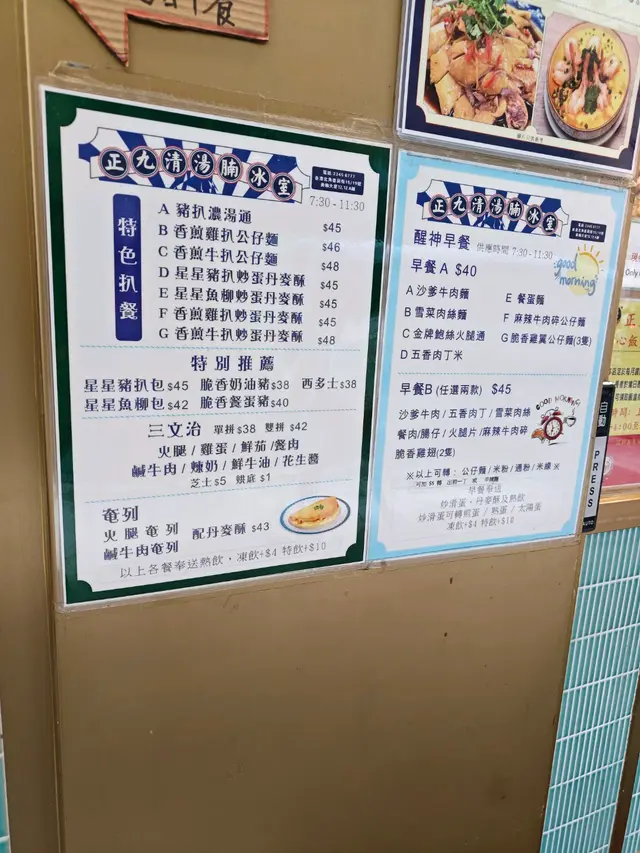 正九清湯腩冰室
7:30 - 11:30
特色扒餐
A 豬扒濃湯通 $45
B 香煎雞扒公仔麵 $46
C 香煎牛扒公仔麵 $48
D 星星豬扒炒蛋丹麥酥 $45
E 星星魚柳炒蛋丹麥酥 $45
F 香煎雞扒炒蛋丹麥酥 $45
G 香煎牛扒炒蛋丹麥酥 $48
特別推薦
星星豬扒包 $45 脆香奶油豬 $38 西多士 $38
星星魚柳包 $42 脆香餐蛋豬 $40
三文治 單拼 $38 雙拼 $42
火腿 / 雞蛋 / 鮮茄 / 餐肉
鹹牛肉 / 辣奶 / 鮮牛油 / 花生醬
芝士 $5 烘底 $1
奄列
火腿奄列 配丹麥酥 $43
鹹牛肉奄列
以上各餐奉送熱飲，凍飲+$4 特飲+$10
正九清湯腩冰室
醒神早餐 供應時間 7:30 - 11:30
good morning
早餐 A $40
A 沙爹牛肉麵 E 餐蛋麵
B 雪菜肉絲麵 F 麻辣牛肉碎公仔麵
C 金牌鮑絲火腿通 G 脆香雞翼公仔麵(3隻)
D 五香肉丁米
早餐B (任選兩款) $45
GOOD MORNING!
沙爹牛肉 / 五香肉丁 / 雪菜肉絲
餐肉/腸仔 / 火腿片 /麻辣牛肉碎
脆香雞翅(2隻)
※以上可轉：公仔麵 / 米粉 / 通粉 / 米線 ※
早餐奉送
炒滑蛋、丹麥酥及熱飲
炒滑蛋可轉煎蛋 / 熟蛋 / 太陽蛋
凍飲+$4 特飲+$10
自動
PRESS